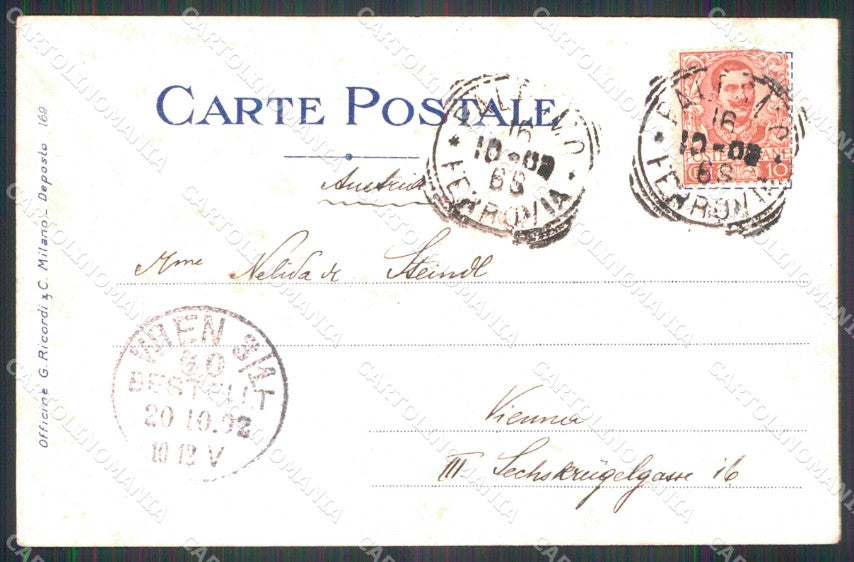 CARTE POSTALE
Austria
Mme Nelida de Steindl
Vienna
III. Sechskrügelgasse 16
Officine G. Ricordi & C. Milano - Deposto 169
PALERMO
16
10-02
6S
* FERROVIA *
PALERMO
16
10-02
6S
* FERROVIA *
POSTE ITALIANE
10
WIEN 3/1
50
BESTELLT
20 10.02
10 12 V
CARTOLINOMANIA